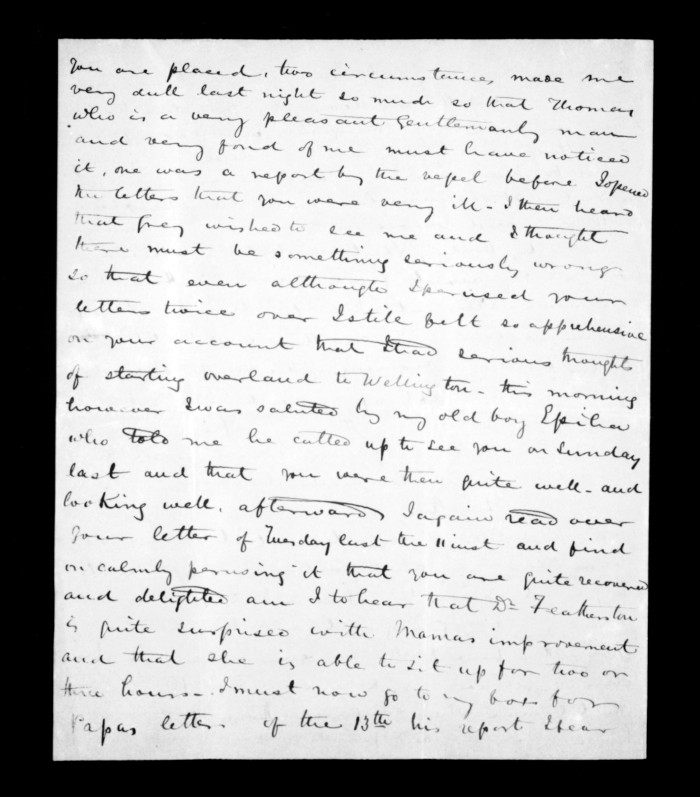 you are placed, two circumstances made me
very dull last night so much so that Thomas,
who is a very pleasant Gentlemanly man
and very fond of me must have noticed
it, one was a report by the vessel before I opened
the letters that you were very ill - I then heard
that Grey wished to see me and I thought
there must be something seriously wrong
so that even although I perused your
letters twice over I still felt so apprehensive
on your account that I had serious thoughts
of starting overland to Wellington - this morning
however I was saluted by my old boy Epiha
who told me he called up to see you on Sunday
last and that you were then quite well - and
looking well, afterwards I again read over
your letter of Tuesday last the 11 inst and find
on calmly perusing it that you are quite recovered
and delighted am I to hear that Dr Featherston
is quite surprised with Mamas improvement
and that she is able to sit up for two or
three hours - I must now go to my box for
Papas letter of the 13th his report I hear